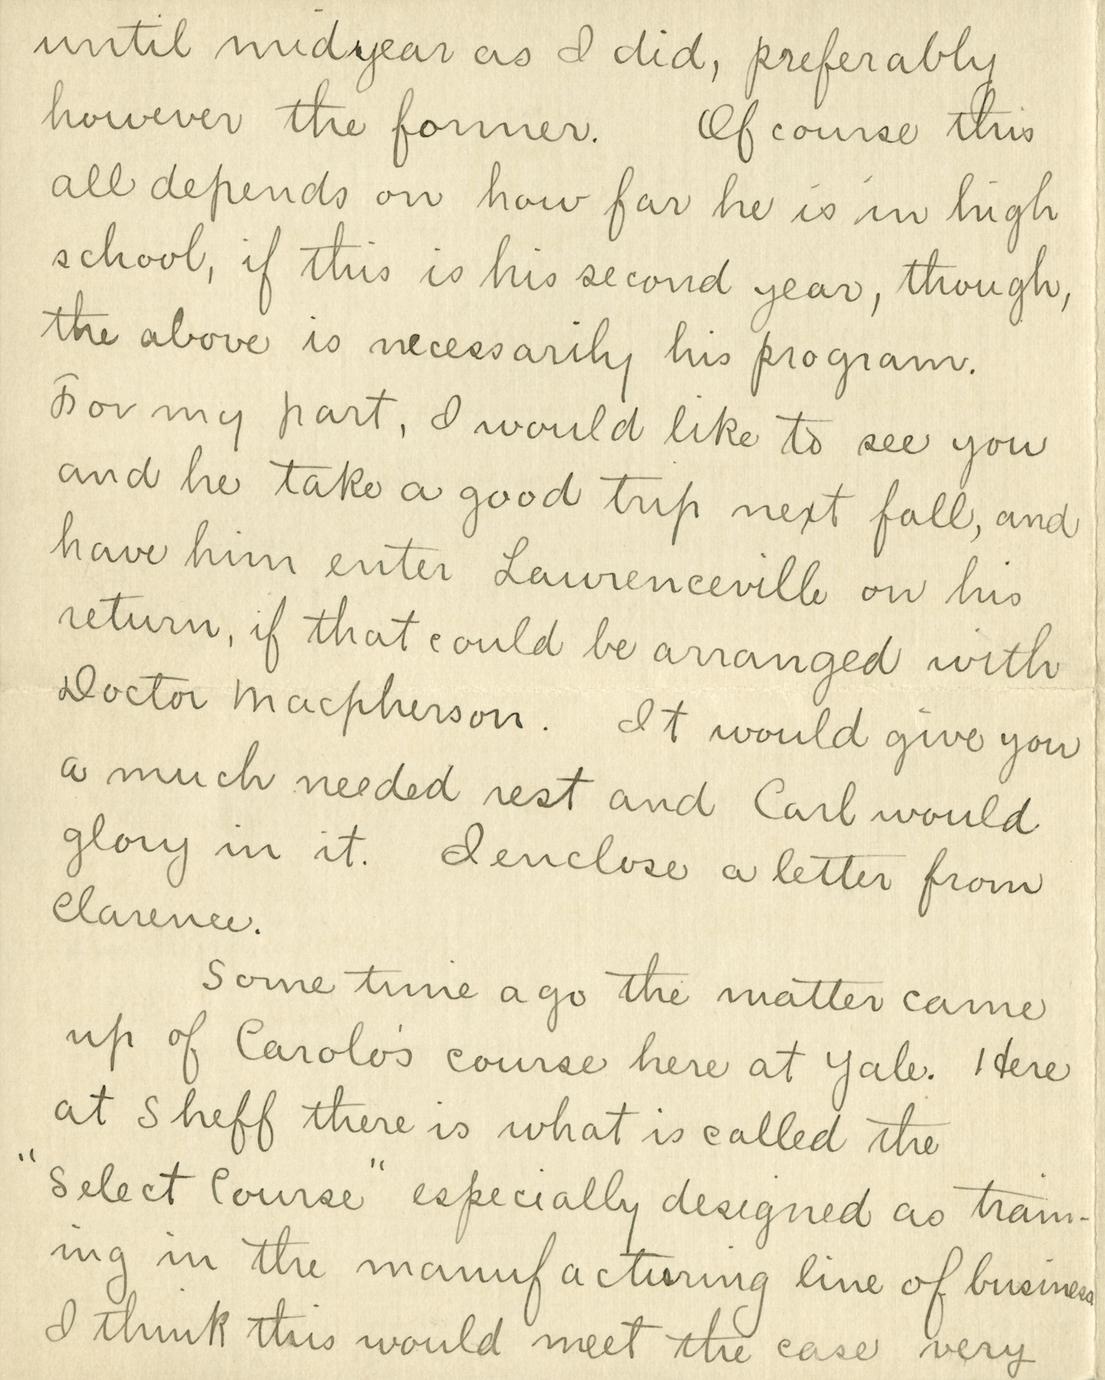 until midyear as I did, preferably
however the former. Of course this
all depends on how far he is in high
school, if this is his second year, though,
the above is necessarily his program.
For my part, I would like to see you
and he take a good trip next fall, and
have him enter Lawrenceville on his
return, if that could be arranged with
Doctor Macpherson. It would give you
a much needed rest and Carl would
glory in it. I enclose a letter from
Clarence.
Some time ago the matter came
up of Carolo's course here at Yale. Here
at Sheff there is what is called the
"Select Course" especially designed as train-
ing in the manufacturing line of business
I think this would meet the case very